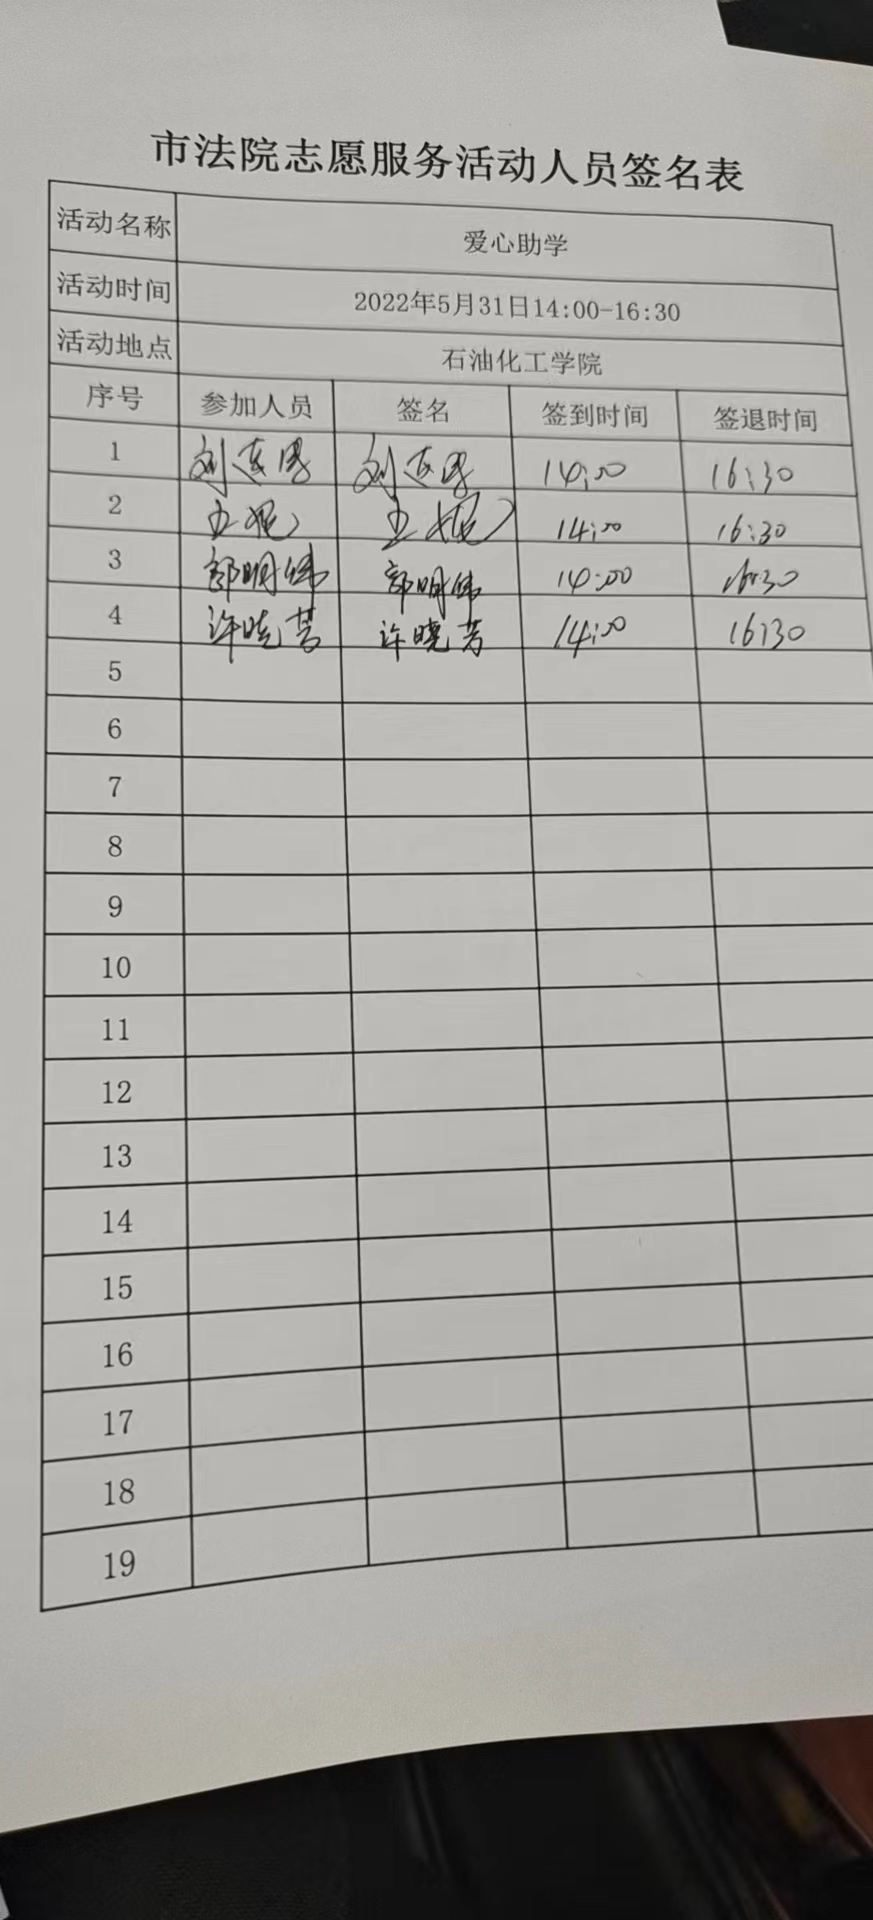 市法院志愿服务活动人员签名表
活动名称 爱心助学
活动时间 2022年5月31日14:00-16:30
活动地点 石油化工学院
序号 参加人员 签名 签到时间 签退时间
1 14:00 16:30
2 14:00 16:30
3 14:00 16:30
4 许晓芳 许晓芳 14:00 16:30
5
6
7
8
9
10
11
12
13
14
15
16
17
18
19